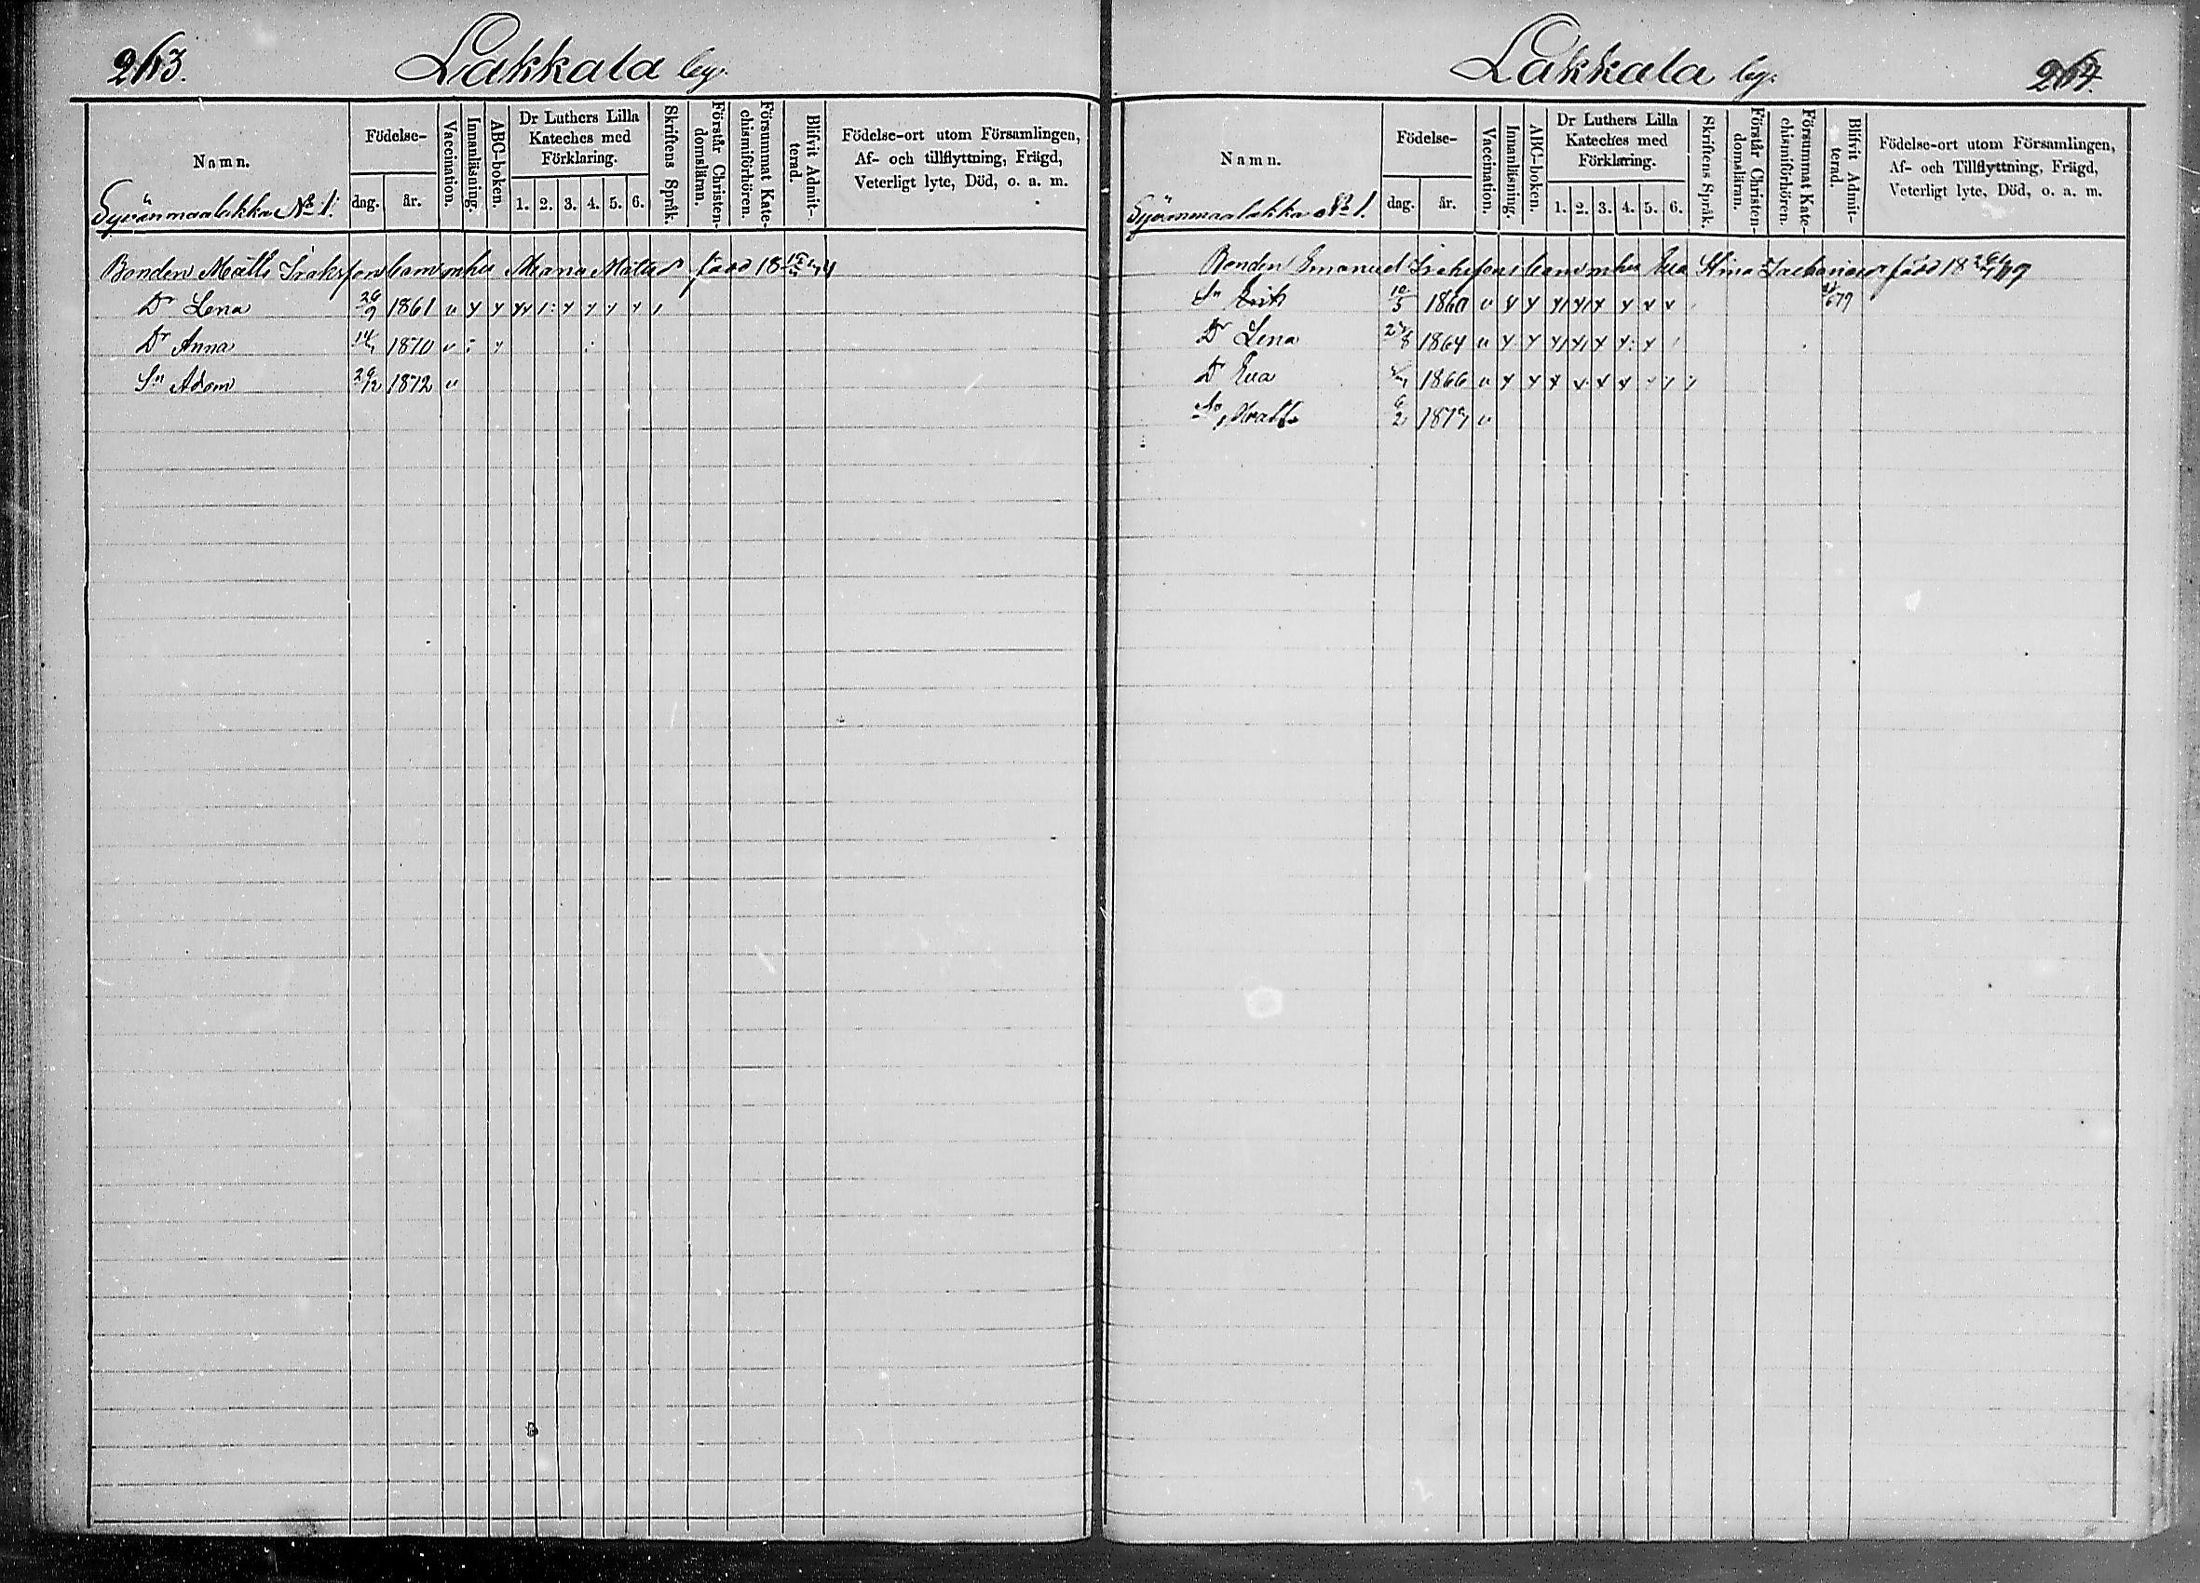 263. Lakkala by.
Namn. Födelse- dag. år. Vaccination. Innanläsning. ABC-boken. Dr Luthers Lilla Kateches med Förklaring. 1. 2. 3. 4. 5. 6. Skriftens Språk. Förstår Christendomsläran. Försummat Katechismiförhören. Blifvit Admitterad. Födelse-ort utom Församlingen, Af- och tillflyttning, Frägd, Veterligt lyte, Död, o. a. m.
Syvänmaalakka № 1.
Bonden Matts Isaksson barn m hu Mats född 18
Dr Lena 26/9 1861
Dr Anna 1870
Sn Adam 29/12 1872
Lakkala by. 264.
Namn. Födelse- dag. år. Vaccination. Innanläsning. ABC-boken. Dr Luthers Lilla Kateches med Förklaring. 1. 2. 3. 4. 5. 6. Skriftens Språk. Förstår Christendomsläran. Försummat Katechismiförhören. Blifvit Admitterad. Födelse-ort utom Församlingen, Af- och Tillflyttning, Frägd, Veterligt lyte, Död, o. a. m.
Syvänmaalakka № 1.
Bonden Emanuel Isakssons barn m hu Eva Stina född 18
Sn Erik 10/5 1860
Dr Lena 1864
Dr Eva 1866
6/2